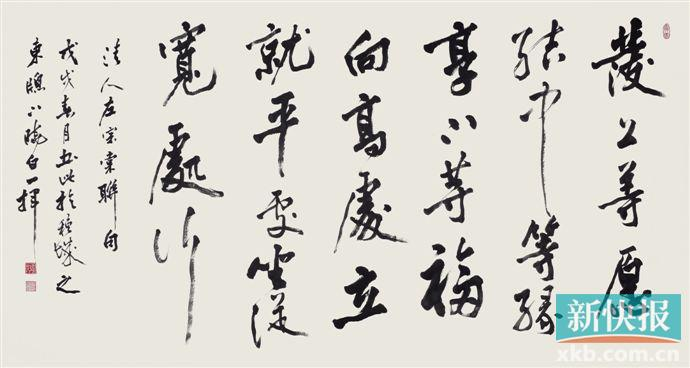 發上等愿
結中等緣
享下等福
向高處立
就平處坐從
寬處行
清人左宗棠聯句
戊戌春月書此於穗城之
東 白一揮
新快报
xkb.com.cn